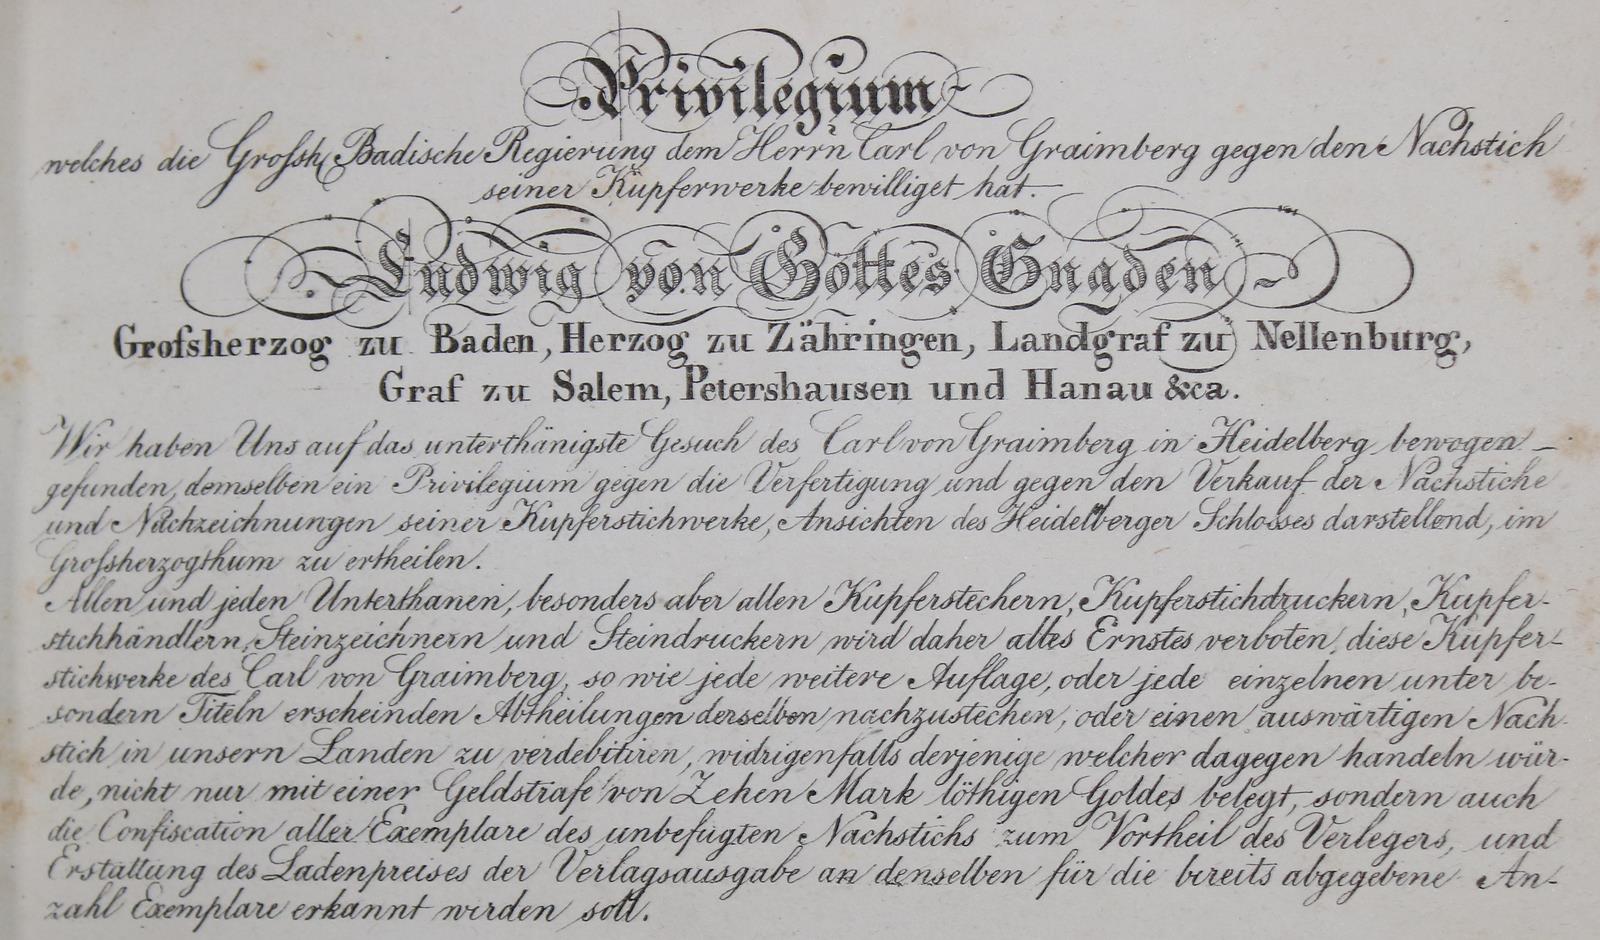 Privilegium
welches die Großh. Badische Regierung dem Herrn Carl von Graimberg gegen den Nachstich
seiner Kupferwerke bewilliget hat.
Ludwig von Gottes Gnaden
Grofsherzog zu Baden, Herzog zu Zähringen, Landgraf zu Nellenburg,
Graf zu Salem, Petershausen und Hanau &ca.
Wir haben Uns auf das unterthänigste Gesuch des Carl von Graimberg in Heidelberg bewogen
gefunden, demselben ein Privilegium gegen die Verfertigung und gegen den Verkauf der Nachstiche
und Nachzeichnungen seiner Kupferstichwerke, Ansichten des Heidelberger Schlosses darstellend, im
Großherzogthum zu ertheilen.
Allen und jeden Unterthanen, besonders aber allen Kupferstechern, Kupferstichdruckern, Kupfer-
stichhändlern, Steinzeichnern und Steindruckern wird daher alles Ernstes verboten, diese Kupfer-
stichwerke des Carl von Graimberg, so wie jede weitere Auflage, oder jede einzelnen unter be-
sondern Titeln erscheinden Abtheilungen derselben nachzustechen, oder einen auswärtigen Nach-
stich in unsern Landen zu verdebitiren, widrigenfalls derjenige welcher dagegen handeln wür-
de, nicht nur mit einer Geldstrafe von Zehen Mark löthigen Goldes belegt, sondern auch
die Confiscation aller Exemplare des unbefugten Nachstichs zum Vortheil des Verlegers, und
Erstattung des Ladenpreises der Verlagsausgabe an denselben für die bereits abgegebene An-
zahl Exemplare erkannt werden soll.